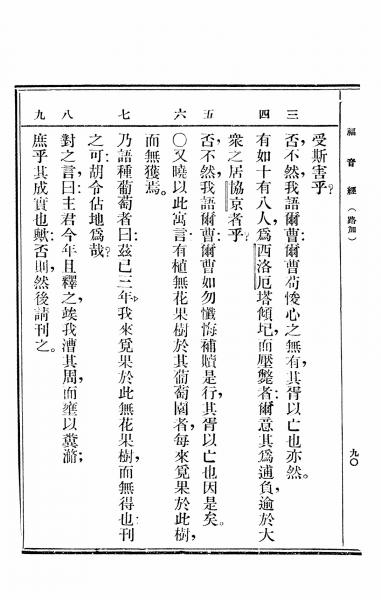 福音經(路加)
九〇
受斯害乎?
三 否,不然,我語爾曹,爾曹苟悛心之無有,其胥以亡也亦然。
四 有如十有八人,爲西洛厄塔傾圮,而壓斃者:爾意其爲逋負,逾於大
衆之居協京者乎?
五 否,不然,我語爾曹:爾曹如勿懺悔補贖是行,其胥以亡也因是矣。
六 〇又曉以此寓言:有植無花果樹於其葡萄園者,每來覓果於此樹,
而無獲焉。
七 乃語種葡萄者曰:茲已三年,我來覓果於此無花果樹,而無得也:刊
之可:胡令佔地爲哉?
八 對之言曰:主君今年且釋之,竢我漕其周,而壅以糞潲;
九 庶乎其成實也歟:否則,然後請刊之。